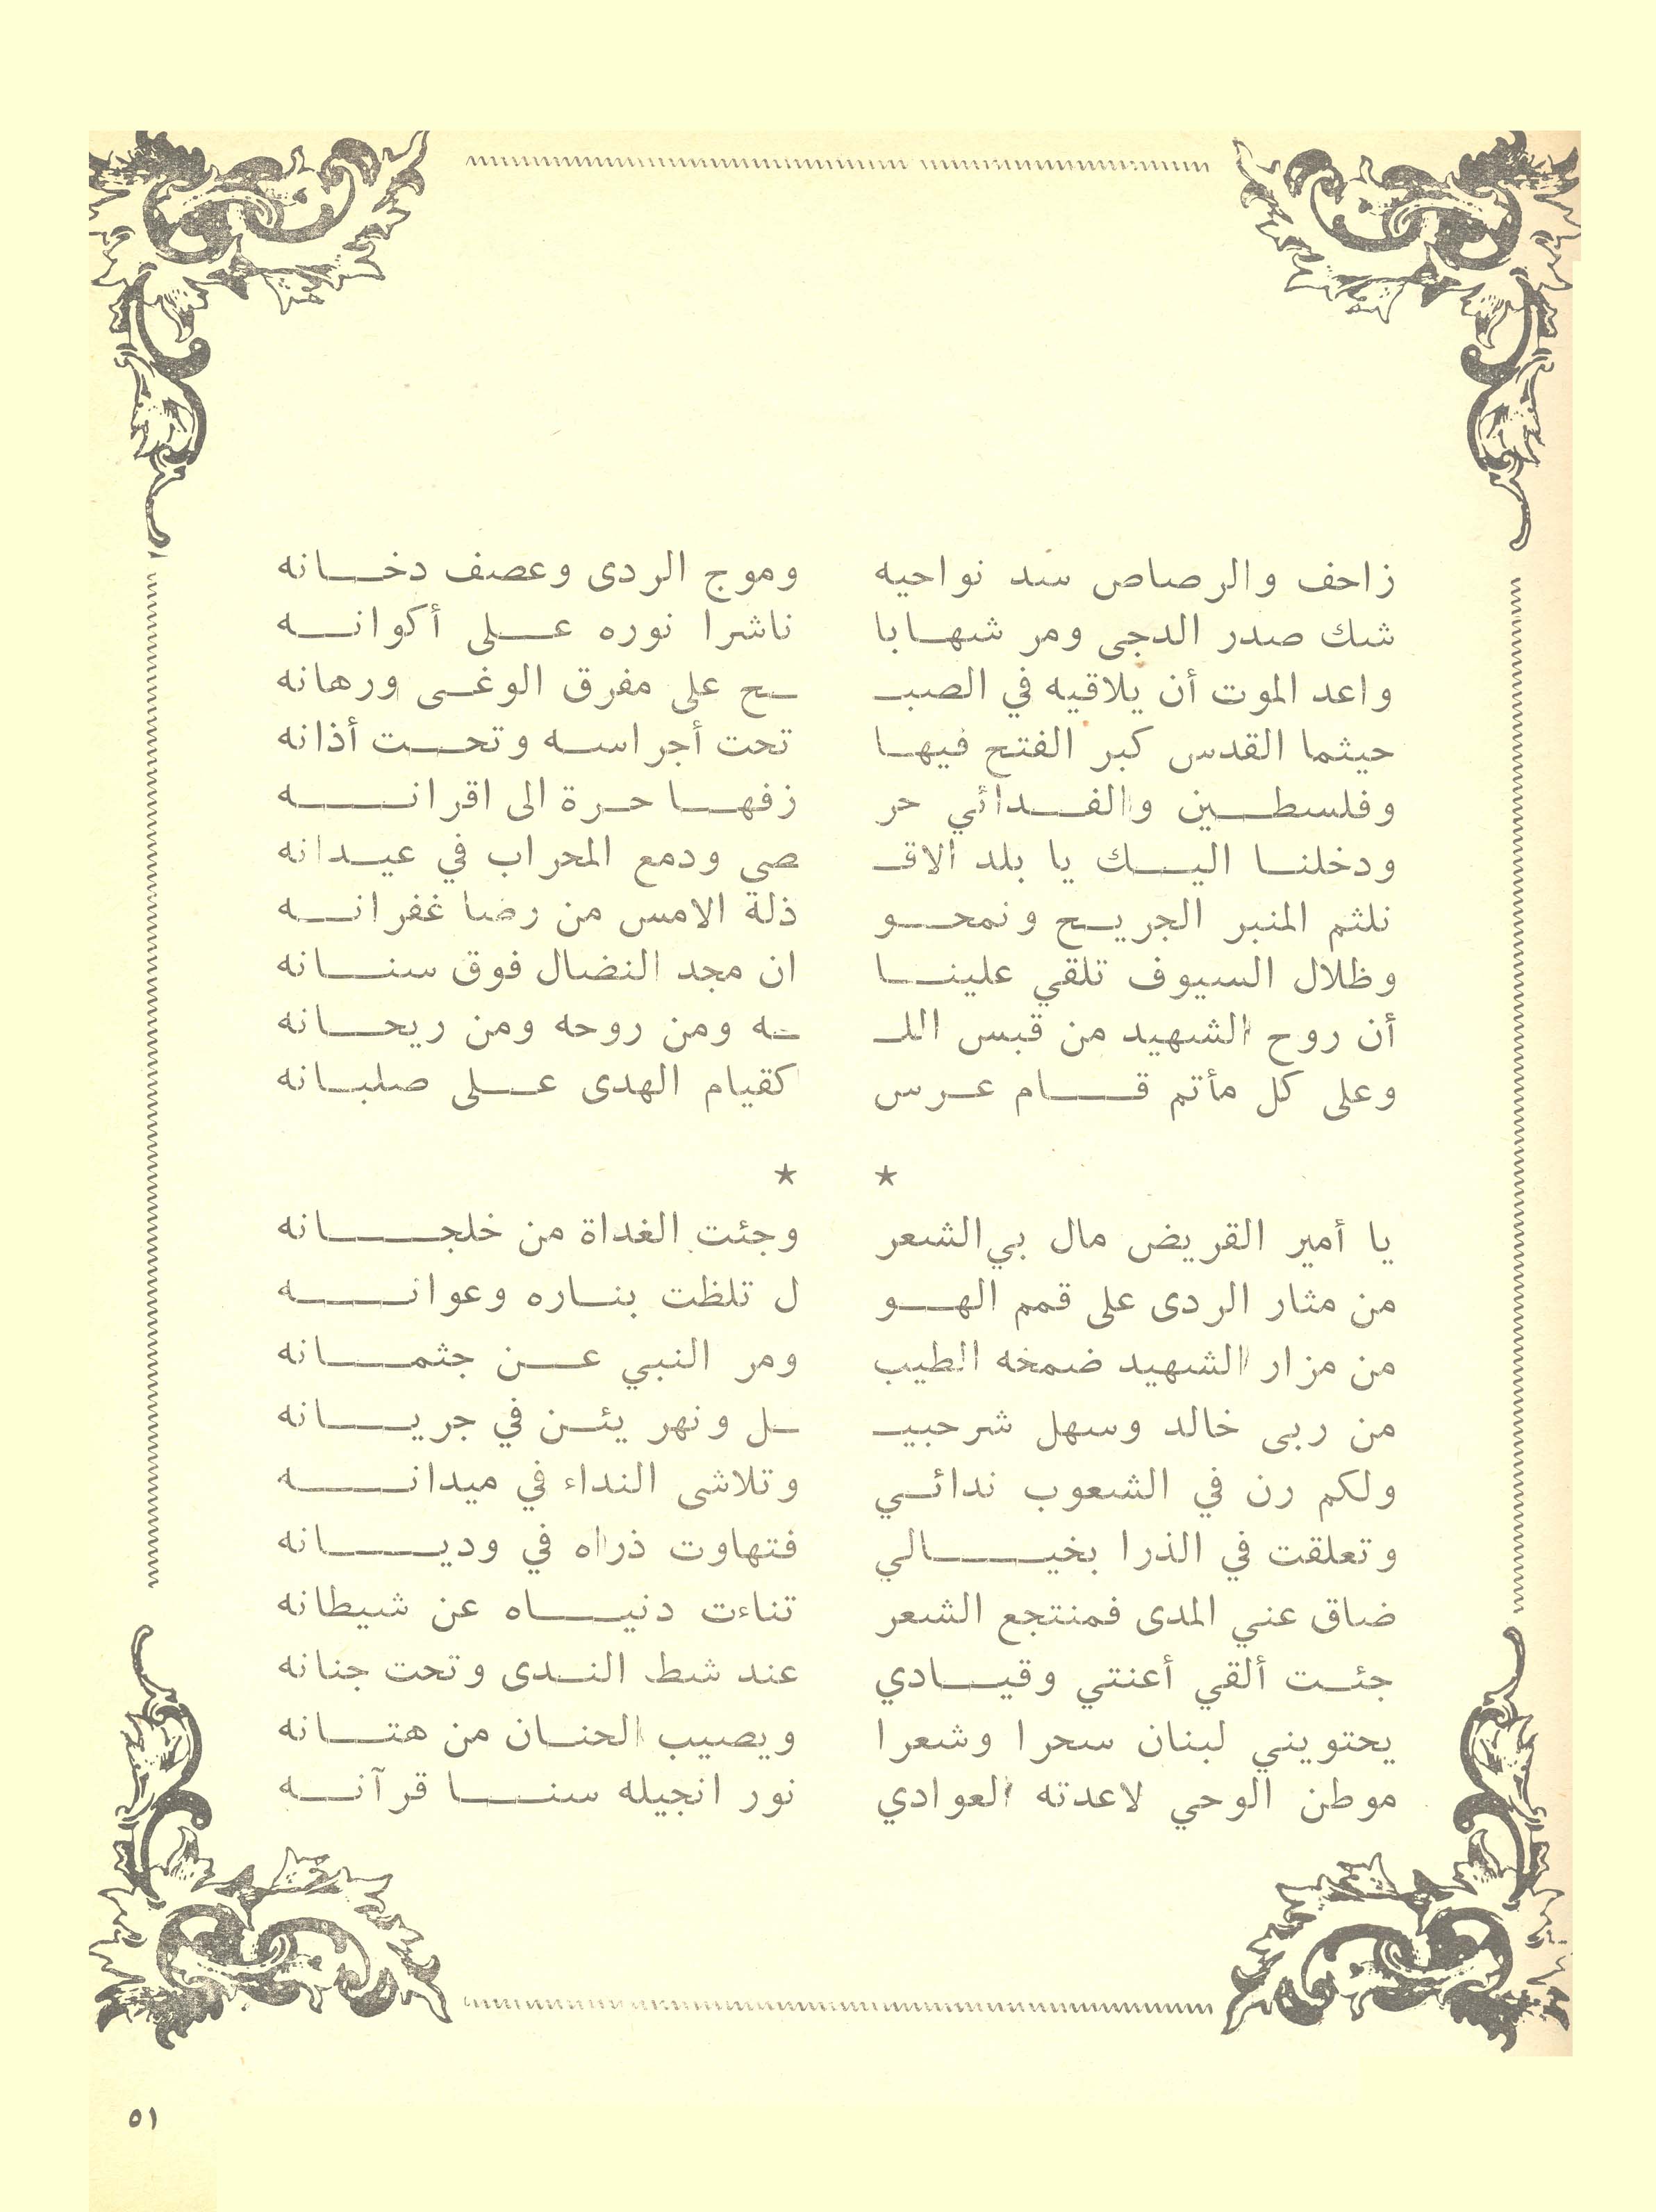 زاحف والرصاص سد نواحيه وموج الردى وعصف دخانه
شك صدر الدجى ومر شهابا ناشرا نوره على أكوانه
واعد الموت أن يلاقيه في الصبـ ـح على مفرق الوغى ورهانه
حيثما القدس كبر الفتح فيها تحت أجراسه وتحت أذانه
وفلسطين والفدائي حر زفها حرة الى اقرانه
ودخلنا اليك يا بلد الاقـ صى ودمع المحراب في عيدانه
نلثم المنبر الجريح ونمحو ذلة الامس من رضا غفرانه
وظلال السيوف تلقي علينا ان مجد النضال فوق سنانه
أن روح الشهيد من قبس اللـ ـه ومن روحه ومن ريحانه
وعلى كل مأتم قام عرس كقيام الهدى على صلبانه
★ ★
يا أمير القريض مال بي الشعر وجئت الغداة من خلجانه
من مثار الردى على قمم الهو ل تلظت بناره وعوانه
من مزار الشهيد ضمخه الطيب ومر النبي عن جثمانه
من ربى خالد وسهل شرحبيـ ـل ونهر يئن في جريانه
ولكم رن في الشعوب ندائي وتلاشى النداء في ميدانه
وتعلقت في الذرا بخيالي فتهاوت ذراه في وديانه
ضاق عني المدى فمنتجع الشعر تناءت دنياه عن شيطانه
جئت ألقي أعنتي وقيادي عند شط الندى وتحت جنانه
يحتويني لبنان سحرا وشعرا ويصيب الحنان من هتانه
موطن الوحي لاعدته العوادي نور انجيله سنا قرآنه
٥١